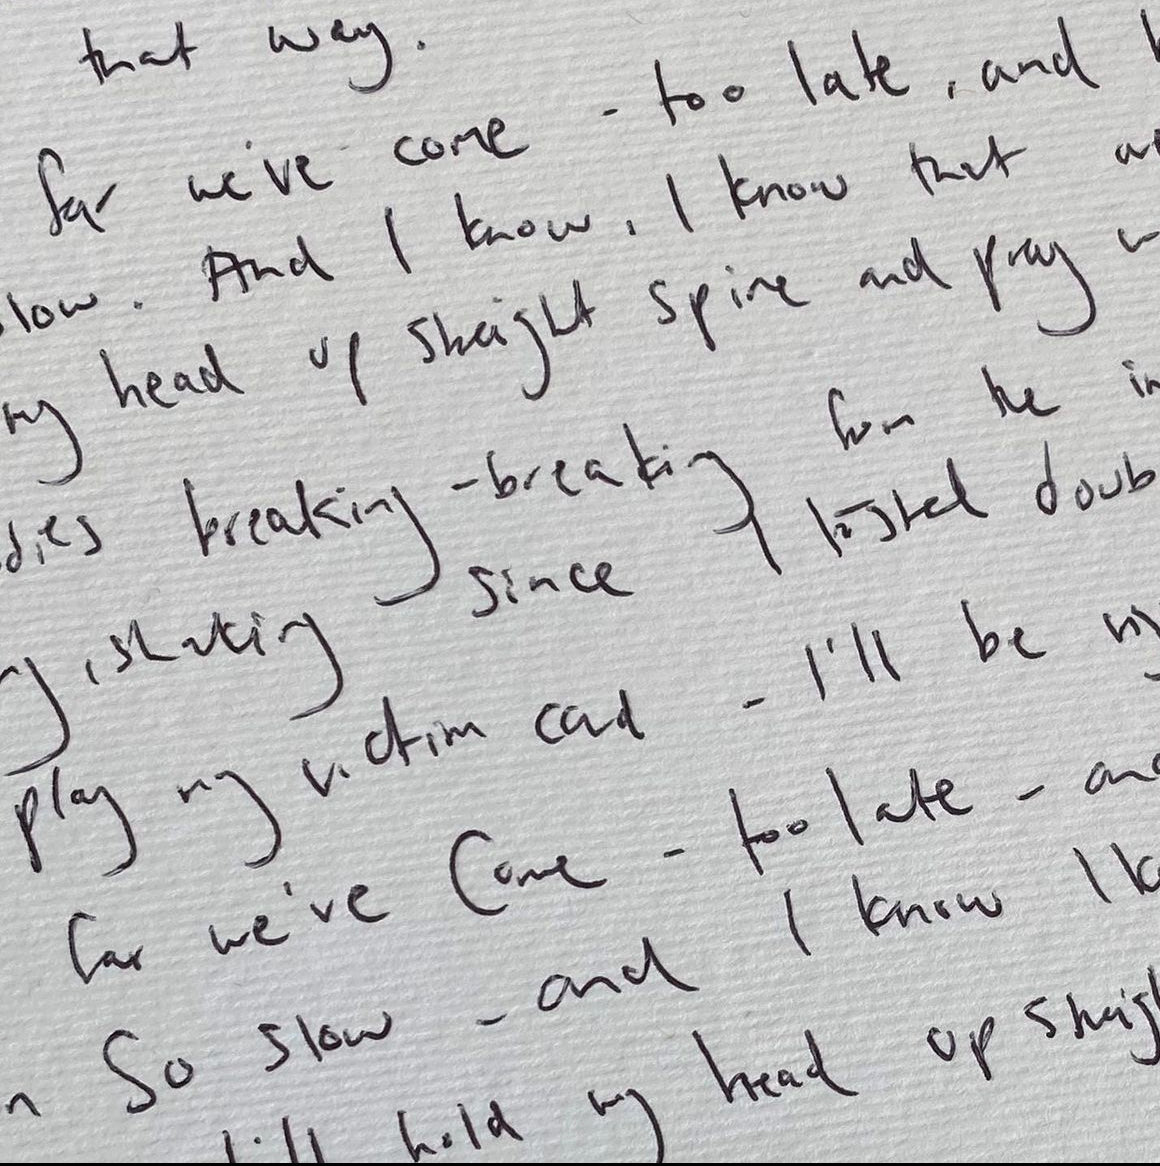 that way.
far we've come - too late, and
slow. And I know, I know that
my head up straight spine and pray
dies breaking-breaking from the in
, shaking since I tasted doub
play my victim card - I'll be my
far we've come - too late - and
So slow - and I know I k
I'll hold my head up straig